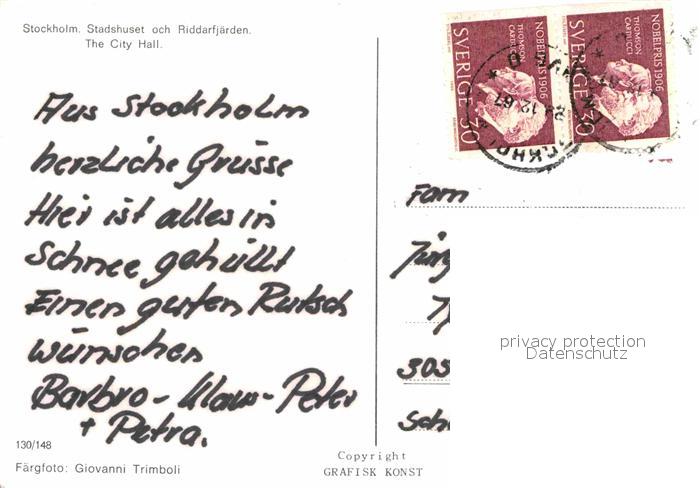 Stockholm. Stadshuset och Riddarfjärden.
The City Hall.
Aus Stockholm
herzliche Grüsse
Hier ist alles in
Schnee gehüllt
Einen guten Rutsch
wünschen
Barbro - Klaus - Peter
+ Petra.
130/148
Färgfoto: Giovanni Trimboli
Copyright
GRAFISK KONST
SVERIGE 30
NOBELPRIS 1906
THOMSON
CARDUCCI
SVERIGE 30
NOBELPRIS 1906
THOMSON
CARDUCCI
24.12.67
Fam
305
privacy protection
Datenschutz